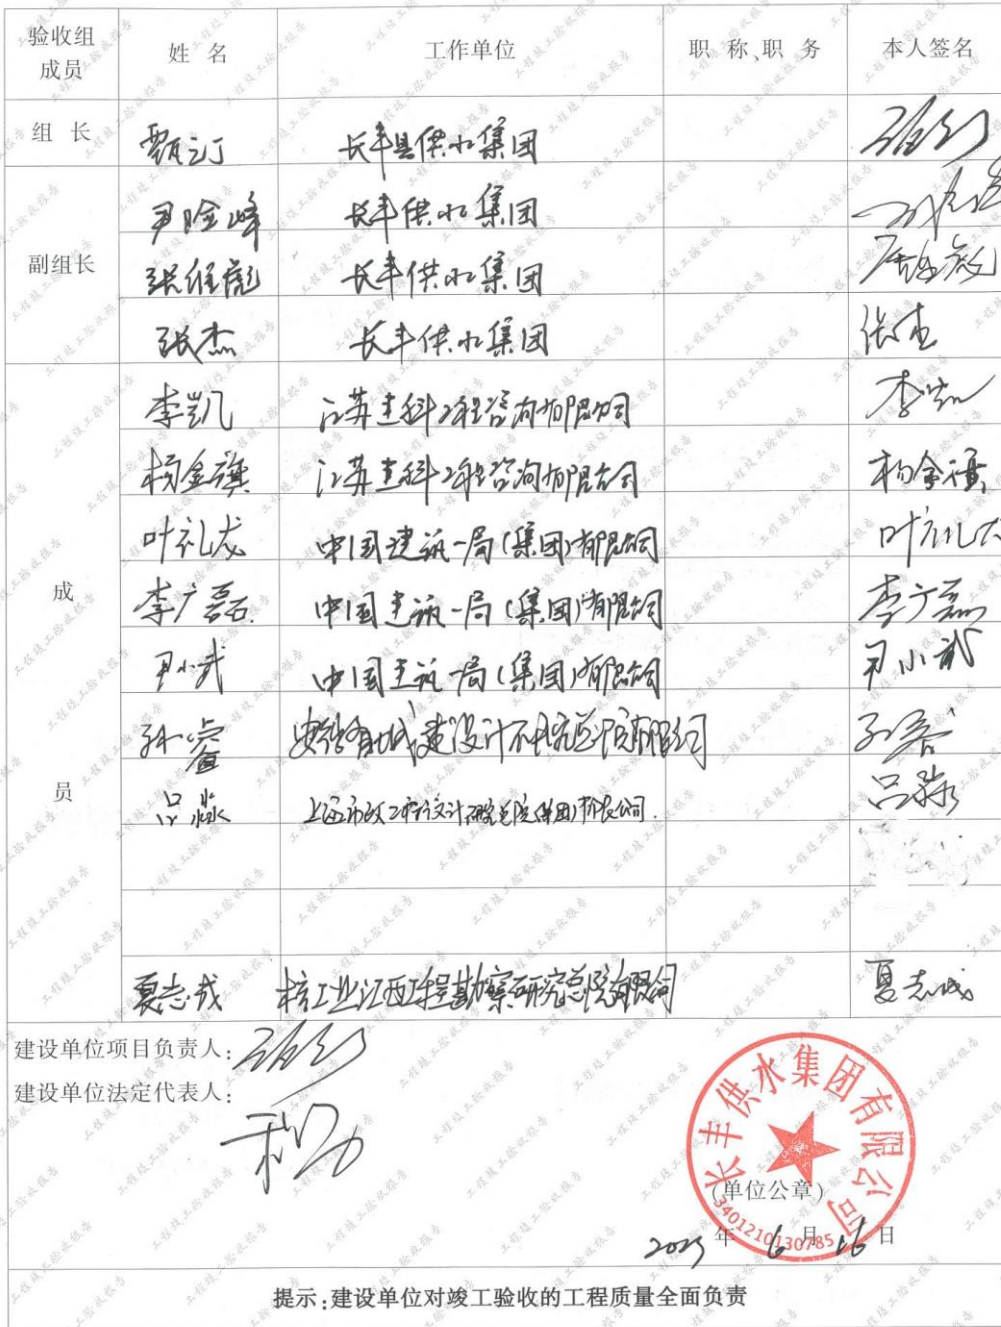 验收组成员 姓 名 工作单位 职 称、职 务 本人签名
组 长 甄汀 长丰县供水集团
副组长
尹险峰 长丰供水集团
张维彪 长丰供水集团
张杰 长丰供水集团 张杰
成员
李凯 江苏建科工程咨询有限公司 李凯
杨金旗 江苏建科工程咨询有限公司 杨金旗
叶礼龙 中国建筑一局(集团)有限公司 叶礼龙
李广磊 中国建筑一局(集团)有限公司 李广磊
尹小武 中国建筑一局(集团)有限公司 尹小武
孙睿 安徽省城建设计研究总院有限公司 孙睿
吕淼 上海市政工程设计研究总院(集团)有限公司 吕淼
夏志成 核工业江西工程勘察研究总院有限公司 夏志成
建设单位项目负责人:
建设单位法定代表人:
长丰供水集团有限公司
(单位公章)
3401210130785
2025 年 6 月 16 日
提示:建设单位对竣工验收的工程质量全面负责
工程竣工验收报告